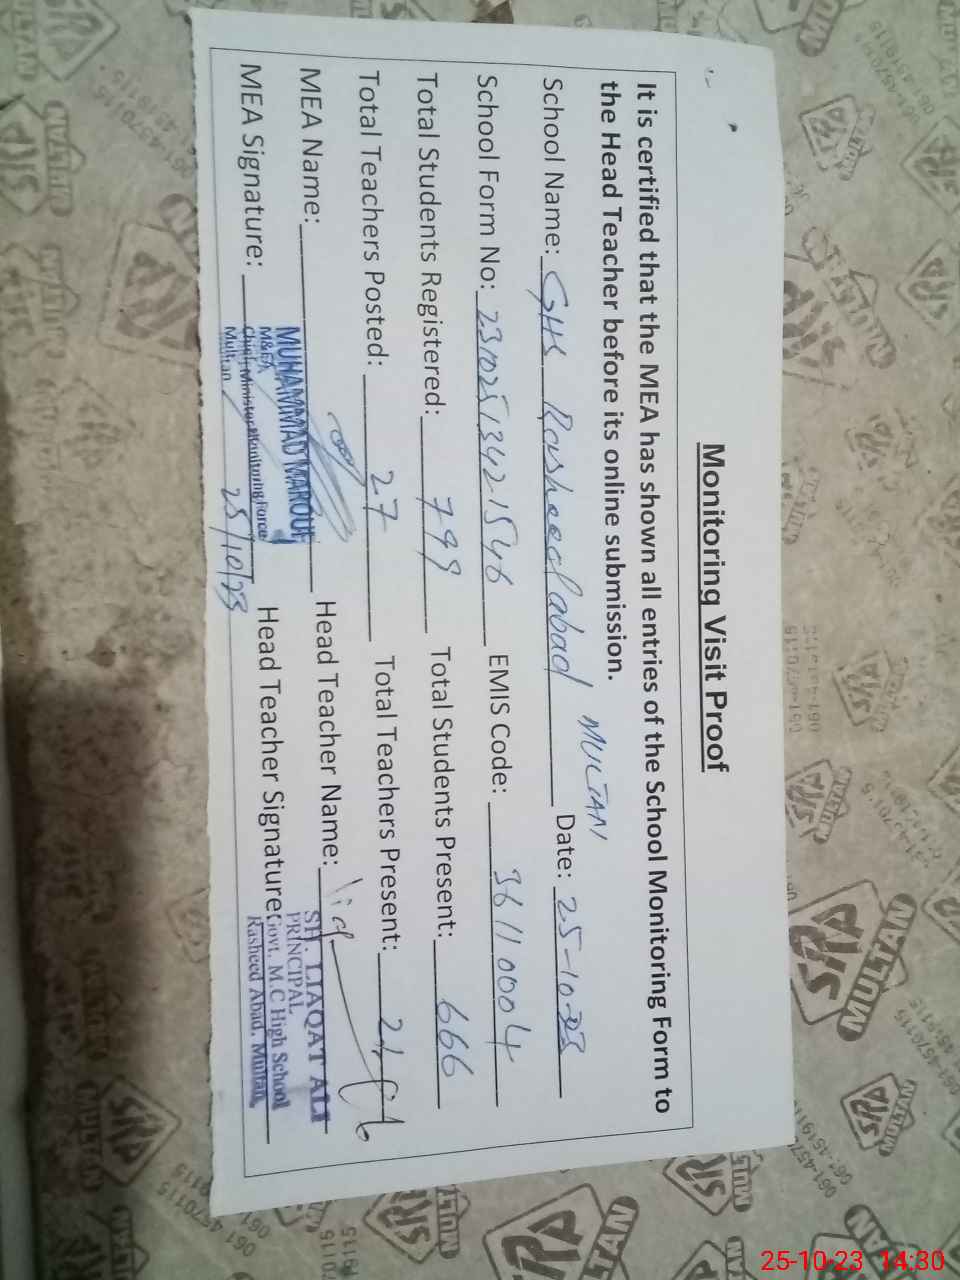 Monitoring Visit Proof
It is certified that the MEA has shown all entries of the School Monitoring Form to
the Head Teacher before its online submission.
MULTAN
School Name: GHS Rasheedabad Date: 25-10-23
School Form No: EMIS Code: 36110004
Total Students Registered: 799 Total Students Present: 666
Total Teachers Posted: 27 Total Teachers Present:
MEA Name: Head Teacher Name:
MUHAMMAD MAROUF
M&EA
Chief Minister Monitoring Force
Multan
SH. LIAQAT ALI
PRINCIPAL
Govt. M.C High School
Rasheed Abad, Multan
MEA Signature: 25/10/23 Head Teacher Signature:
MULTAN
SRS
061-4570115
25-10-23 14:30